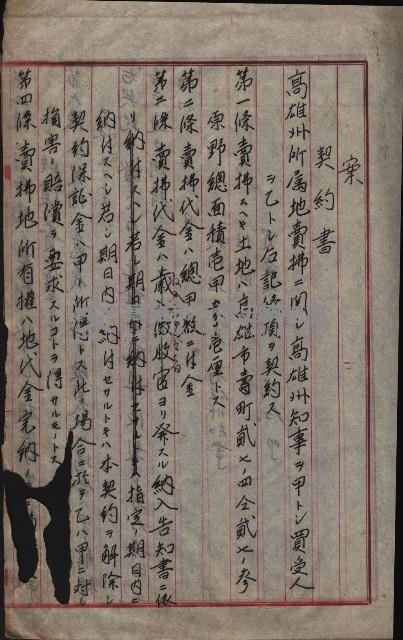 案
契約書
高雄州所属地賣拂ニ関シ高雄州知事ヲ甲トシ買受人
ヲ乙トシ左記條項ヲ契約ス
第一條 賣拂スヘキ土地ハ高雄市壽町貳七ノ四仝貳七ノ参
原野總面積壱甲 壱厘トス
第二條 賣拂代金ハ總甲数ニ付金
第三條 賣拂代金ハ歳入徴收官ヨリ発スル納入告知書ニ依
リ納付スヘシ若シ期日 納付セサル 指定ノ期日内ニ
納付スヘシ若シ期日内ニ納付セサルトキハ本契約ヲ解除シ
契約保証金ハ甲ノ所得トス此ノ場合ニ於テ乙ハ甲ニ対シ
損害ノ賠償ヲ要求スルコトヲ得サルモノトス
第四條 賣拂地所有權ハ地代金完納